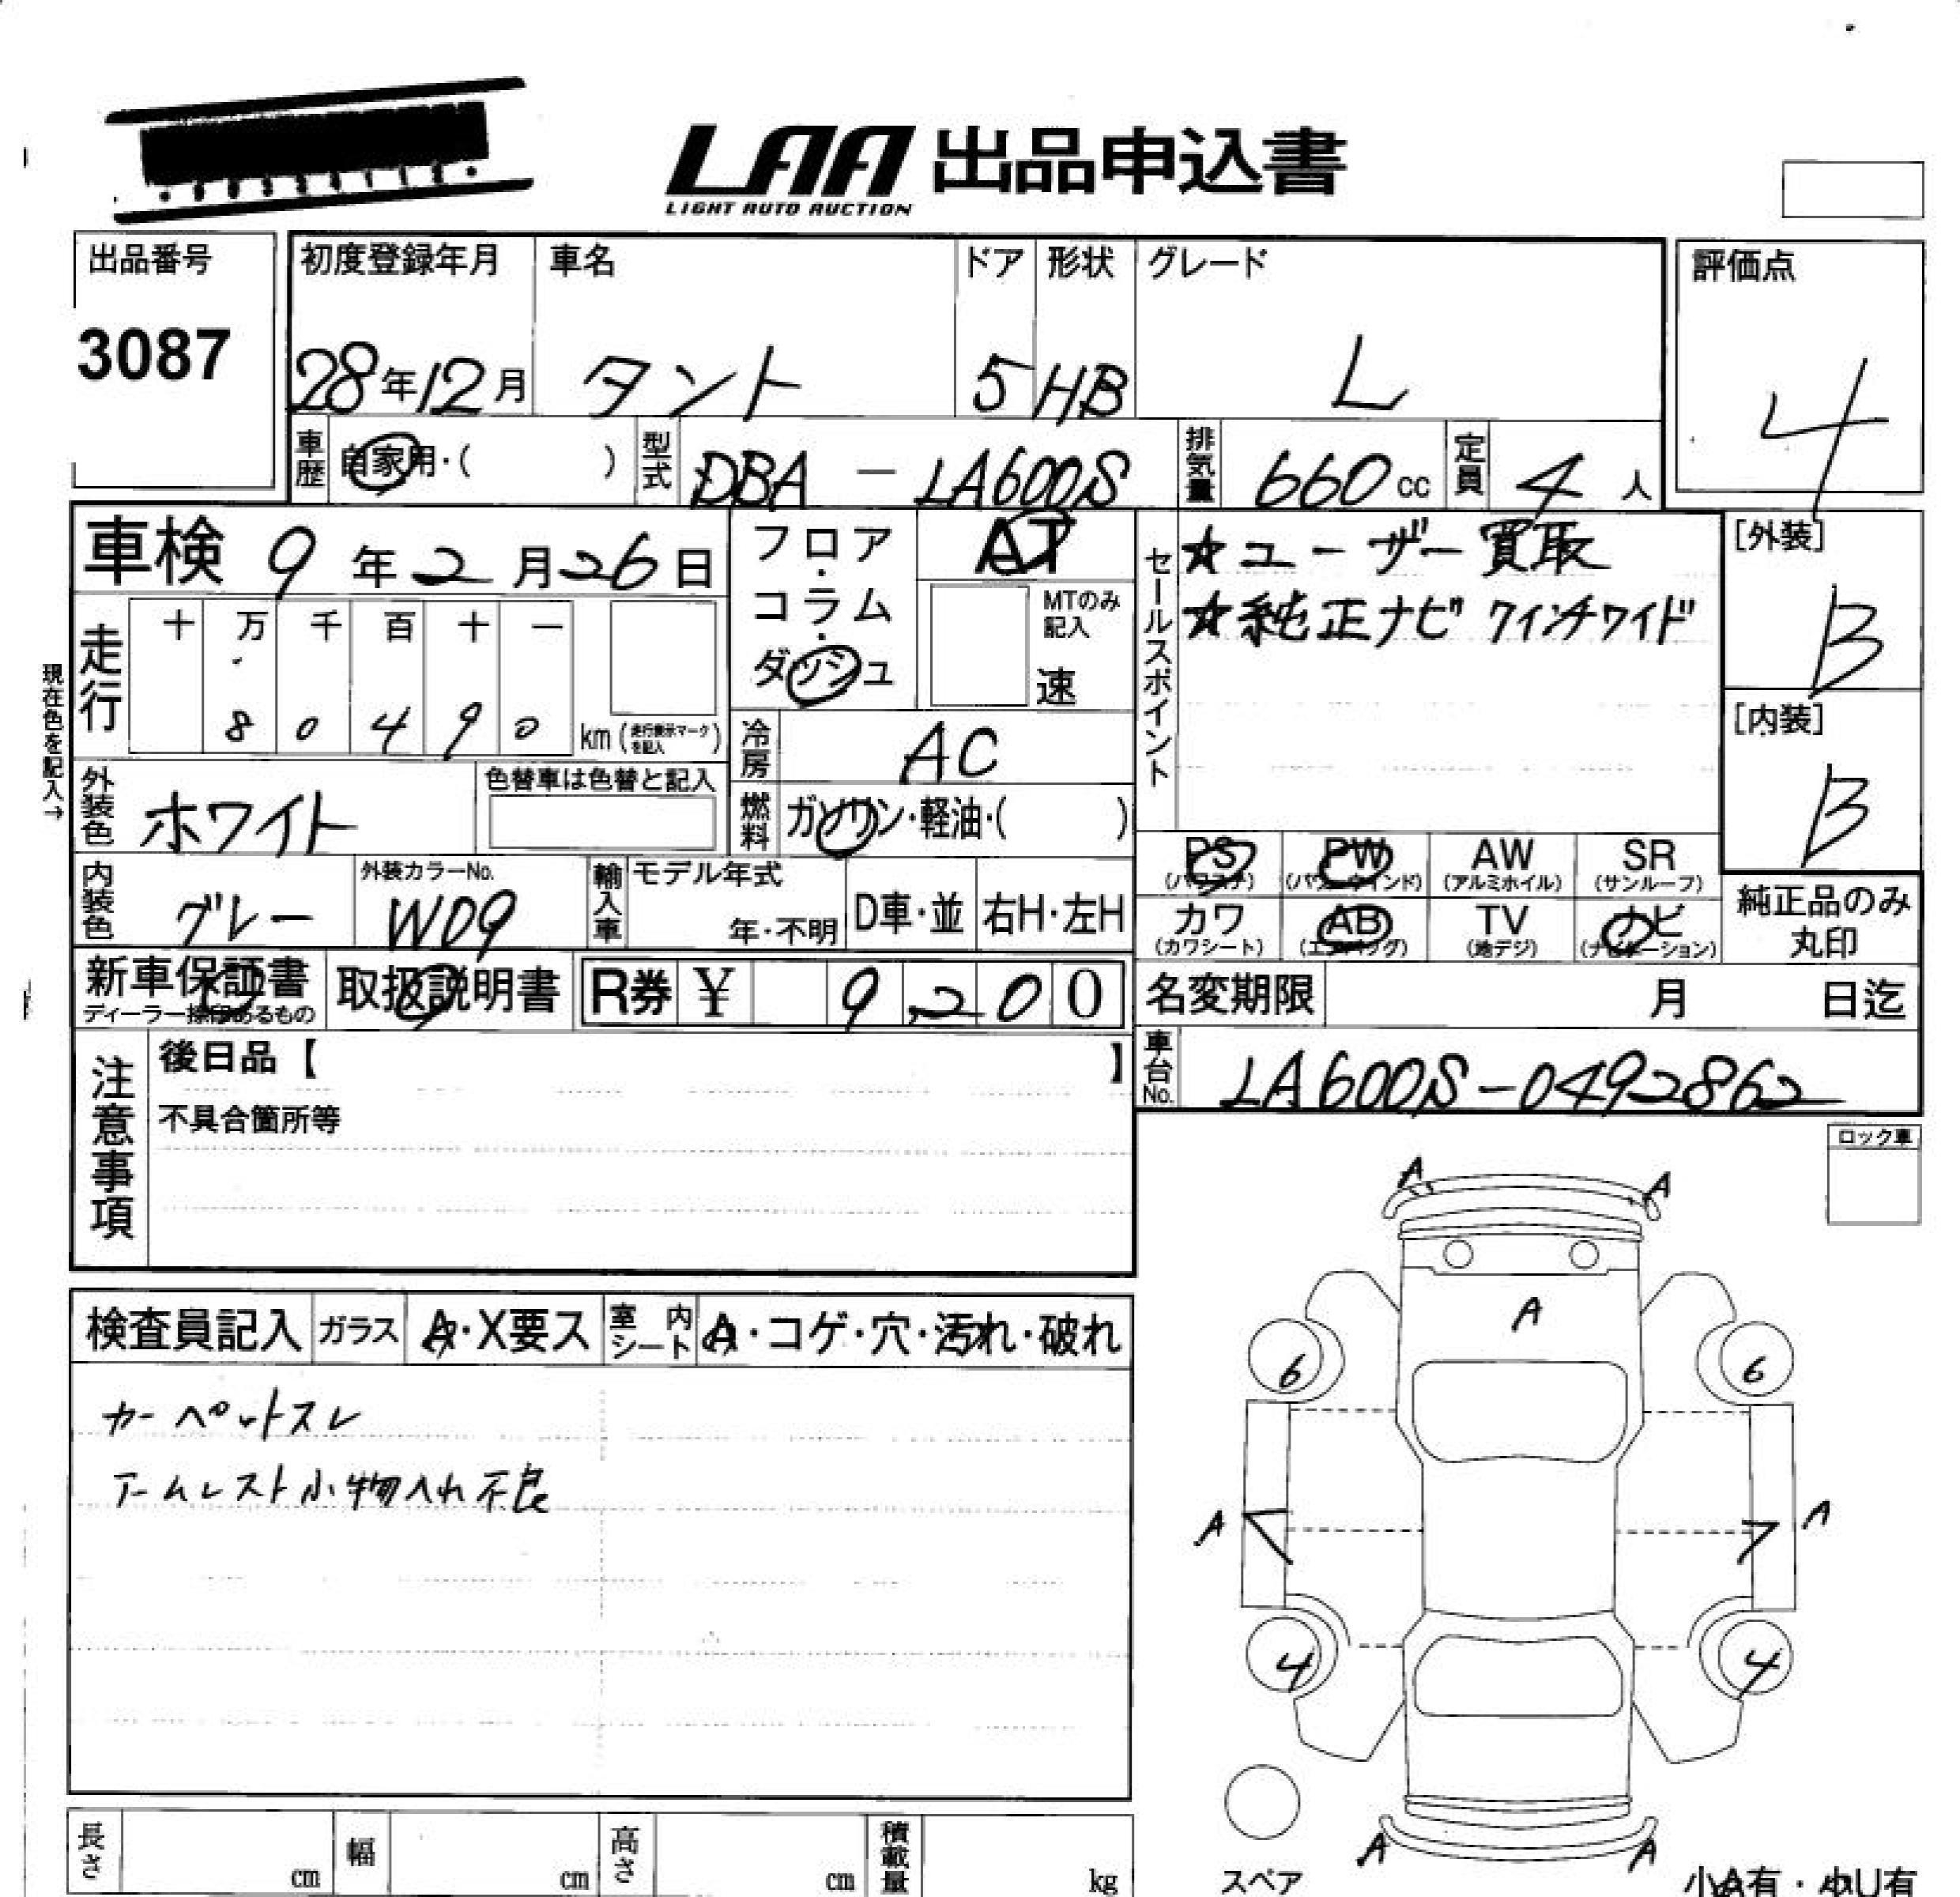 LAA 出品申込書
LIGHT AUTO AUCTION
出品番号
3087
初度登録年月
28年12月
車名
タント
ドア
5
形状
HB
グレード
L
評価点
4
車歴
自家用・( )
型式
DBA - LA600S
排気量
660cc
定員
4人
車検 9年2月26日
フロア・コラム・ダッシュ
AT
MTのみ記入
速
セールスポイント
☆ユーザー買取
☆純正ナビ 7インチワイド
[外装]
B
[内装]
B
現在色を記入→
走行
十 万 千 百 十 一
8 0 4 9 0
km (走行表示マークを記入)
冷房
AC
外装色
ホワイト
色替車は色替と記入
燃料
ガソリン・軽油・( )
内装色
グレー
外装カラーNo.
W09
輸入車
モデル年式
年・不明
D車・並
右H・左H
PS
(パワステ)
PW
(パワーウインド)
AW
(アルミホイル)
SR
(サンルーフ)
カワ
(カワシート)
AB
(エアバッグ)
TV
(地デジ)
ナビ
(ナビゲーション)
純正品のみ
丸印
新車保証書
ディーラー捺印あるもの
取扱説明書
R券 ¥ 9,200
名変期限
月 日迄
注意事項
後日品【 】
不具合箇所等
車台No.
LA600S-0492862
ロック車
検査員記入
ガラス
A・X要ス
室内シート
A・コゲ・穴・汚れ・破れ
カーペットスレ
アームレスト小物入れ不良
A A
A
6 6
A A
4 4
A A
スペア
小A有・小U有
長さ
cm
幅
cm
高さ
cm
積載量
kg